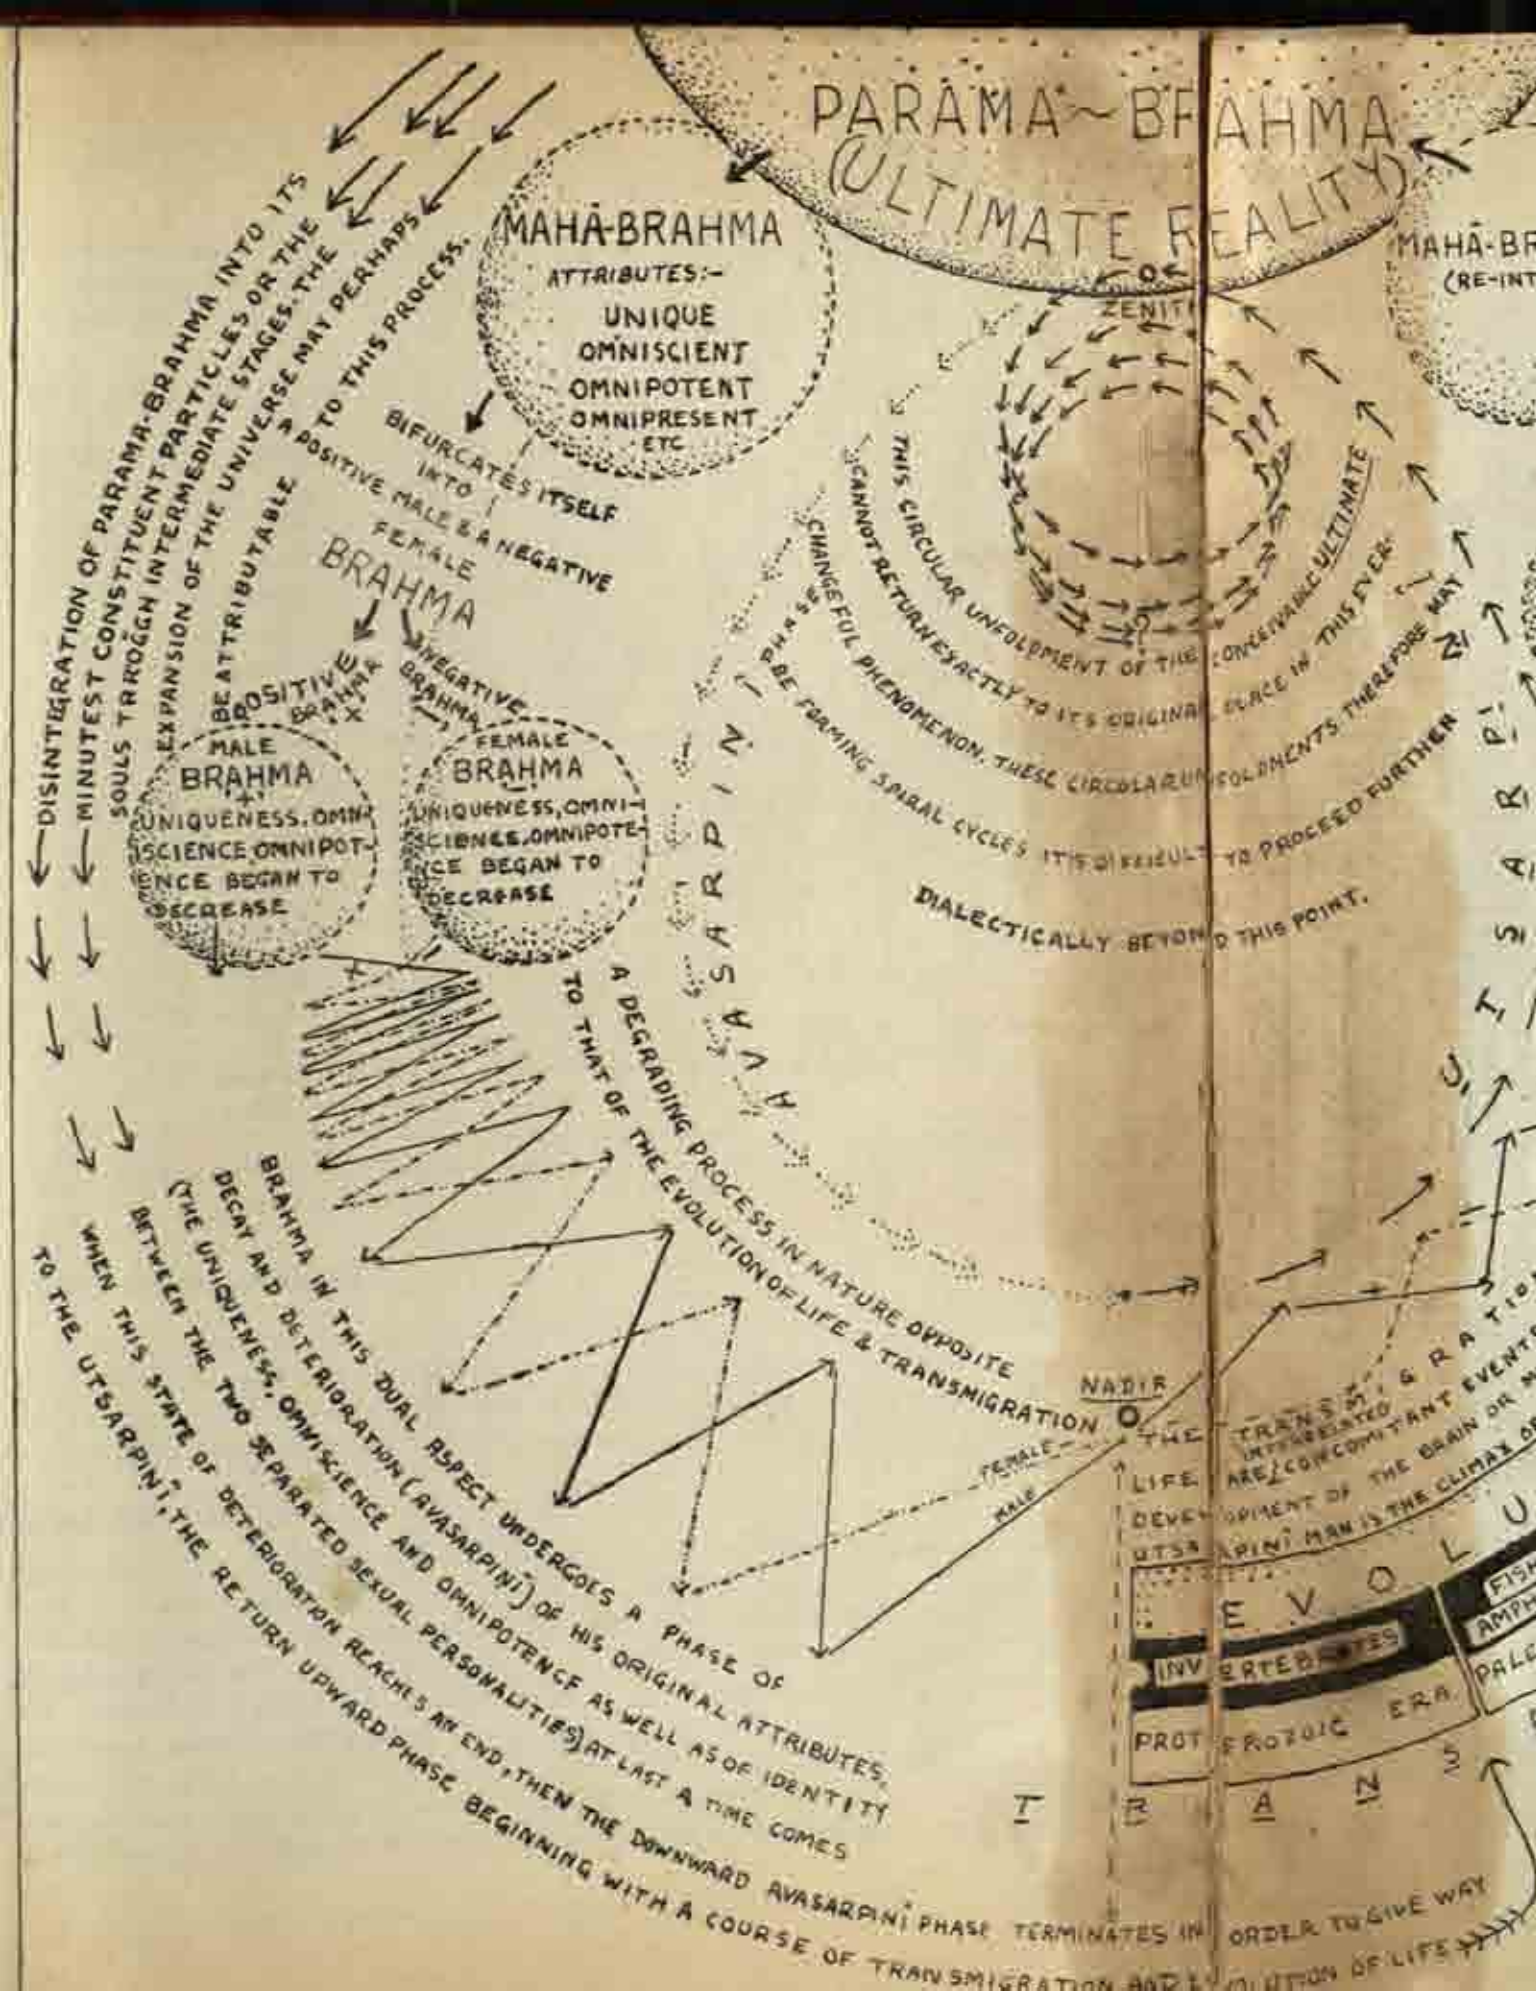 PARAMA~BRAHMA
(ULTIMATE REALITY)
ZENITH
MAHĀ-BRAHMA
ATTRIBUTES:-
UNIQUE
OMNISCIENT
OMNIPOTENT
OMNIPRESENT
ETC
MAHĀ-BR
(RE-INT
DISINTEGRATION OF PARAMA-BRAHMA INTO ITS
MINUTEST CONSTITUENT PARTICLES OR THE
SOULS THROUGH INTERMEDIATE STAGES. THE
EXPANSION OF THE UNIVERSE MAY PERHAPS
BE ATTRIBUTABLE TO THIS PROCESS.
BIFURCATES ITSELF
INTO
A POSITIVE MALE & A NEGATIVE
FEMALE
BRAHMA
POSITIVE
BRAHMA
"+"
NEGATIVE
BRAHMA
"-"
MALE
BRAHMA
"+"
UNIQUENESS, OMN-
ISCIENCE, OMNIPOT-
ENCE BEGAN TO
DECREASE
FEMALE
BRAHMA
"-"
UNIQUENESS, OMNI-
SCIENCE, OMNIPOTE-
NCE BEGAN TO
DECREASE
THIS CIRCULAR UNFOLDMENT OF THE CONCEIVABLE ULTINATE
CANNOT RETURN EXACTLY TO ITS ORIGINAL PLACE IN THIS EVER-
CHANGEFUL PHENOMENON. THESE CIRCULAR UNFOLDMENTS THEREFORE MAY
BE FORMING SPIRAL CYCLES IT IS DIFFICULT TO PROCEED FURTHER
DIALECTICALLY BEYOND THIS POINT.
AVASARPINĪ PHASE
UTSARPINĪ
A DEGRADING PROCESS IN NATURE OPPOSITE
TO THAT OF THE EVOLUTION OF LIFE & TRANSMIGRATION
BRAHMA IN THIS DUAL ASPECT UNDERGOES A PHASE OF
DECAY AND DETERIORATION (AVASARPINĪ) OF HIS ORIGINAL ATTRIBUTES,
(THE UNIQUENESS, OMNISCIENCE AND OMNIPOTENCE AS WELL AS OF IDENTITY
BETWEEN THE TWO SEPARATED SEXUAL PERSONALITIES) AT LAST A TIME COMES
WHEN THIS STATE OF DETERIORATION REACHES AN END, THEN THE DOWNWARD AVASARPINĪ PHASE TERMINATES IN ORDER TO GIVE WAY
TO THE UTSARPINĪ, THE RETURN UPWARD PHASE BEGINNING WITH A COURSE OF TRANSMIGRATION AND EVOLUTION OF LIFE
NADIR
FEMALE
MALE
THE TRANSMIGRATIO
INTERRELATED
LIFE ARE CONCOMITANT EVENTS
DEVELOPMENT OF THE BRAIN OR M
UTSARPINĪ MAN IS THE CLIMAX O
E V O L U
INVERTEBRATES
FISH
AMPH
PROTEROZOIC ERA
PALE
T R A N S